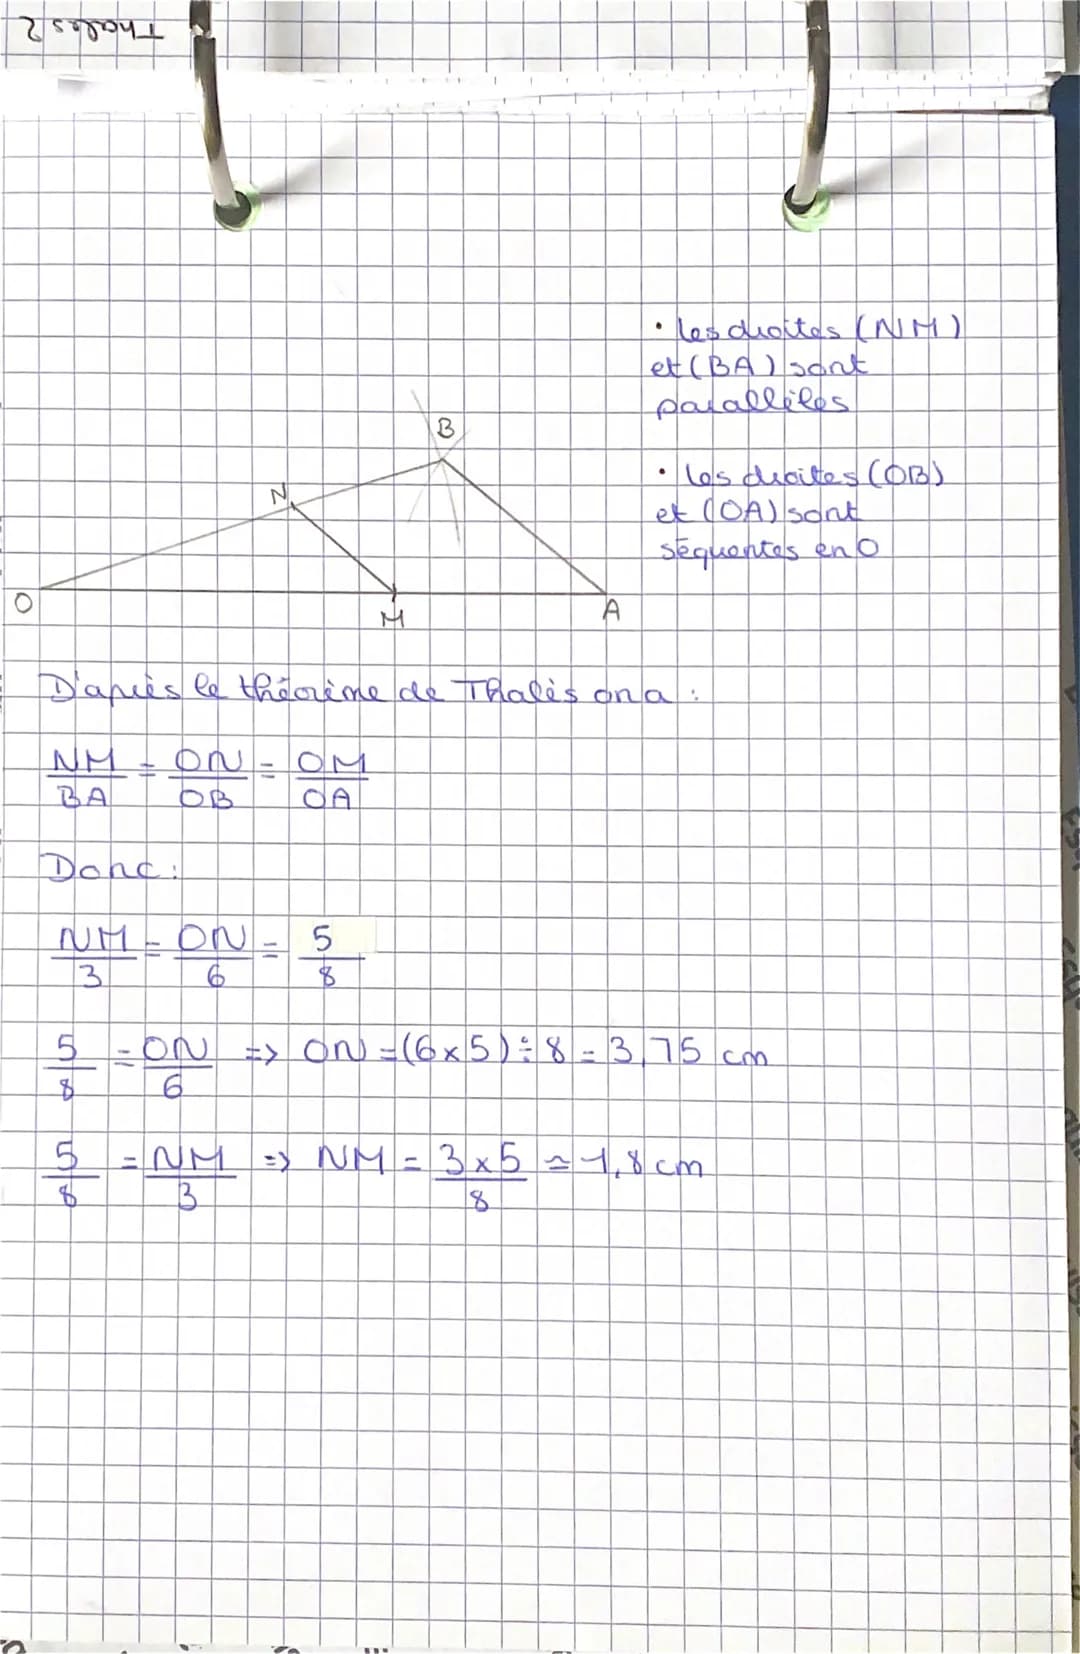 Thales 2
• les droites (NM)
et (BA) sont
parallèles
• les droites (OB)
et (OA) sont
séquentes en O
B
N
O
M
A
D'après le théorème de Thalès on a :
NM/BA = ON/OB = OM/OA
Donc :
NM/3 = ON/6 = 5/8
5/8 = ON/6 => ON = (6x5) ÷ 8 = 3,75 cm
5/8 = NM/3 => NM = 3x5/8 ≃ 1,8 cm